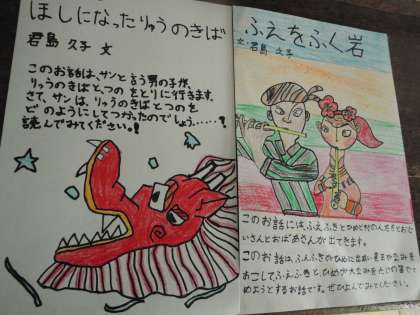 ほしになったりゅうのきば
君島 久子 文
このお話は、サンと言う男の子が、
りゅうのきばとつの をとりに行きます。
さて、サンは、りゅうのきば とつのを
どのようにしてつかったのでしょう……?
読んでみてください。!
ふえをふく岩
文・君島 久子
このお話には、ふえふきとひめと村の人たちとおじ
いさんとおばあさんが出てきます。
このお話は、ふえふきがひめに出会い
おこしてふえふきと、ひめが大な
めようとするお話です。ぜひよんでみてください。